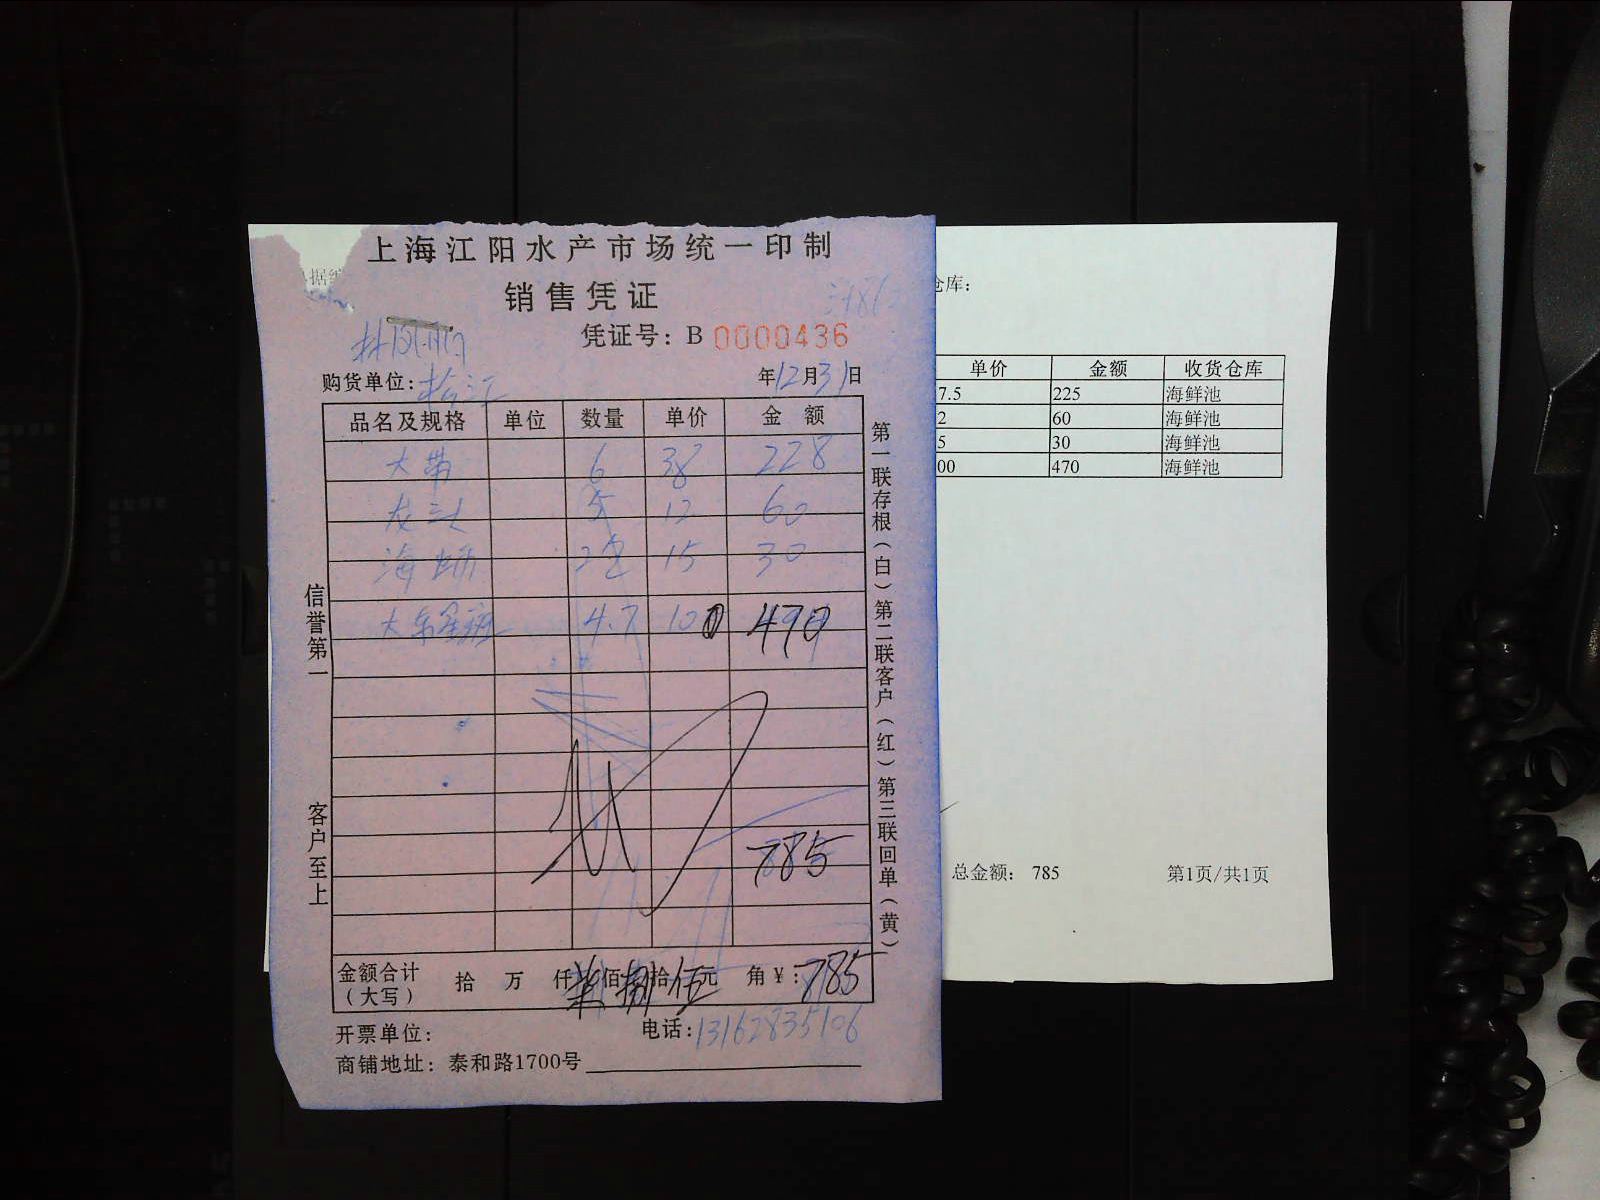 上海江阳水产市场统一印制
销售凭证
凭证号：B 0000436
购货单位： 年12月31日
品名及规格 单位 数量 单价 金额
大带 6 38 228
龙头 5 12 60
海 15 30
大东星斑 4.7 100 470
785
金额合计（大写） 拾 万 仟柒佰捌拾伍元 角￥：785
开票单位： 电话：13162835106
商铺地址：泰和路1700号
信誉第一 客户至上
第一联存根（白）第二联客户（红）第三联回单（黄）
据
仓库：
单价 金额 收货仓库
7.5 225 海鲜池
2 60 海鲜池
5 30 海鲜池
00 470 海鲜池
总金额： 785 第1页/共1页